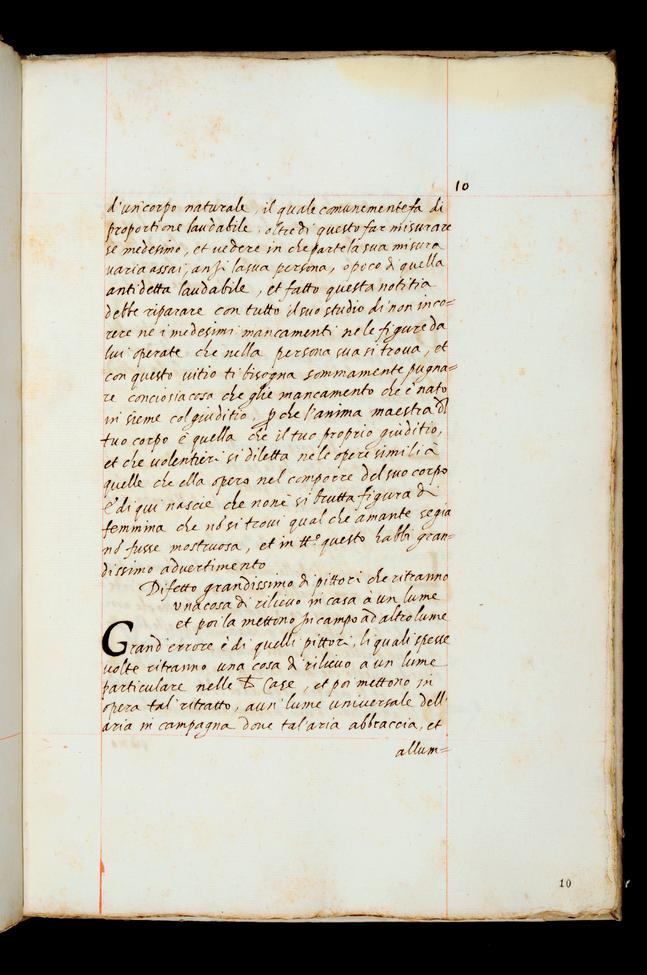 10
d'un corpo naturale, il quale comunemente fa di
proportione laudabile. oltre di questo far misurare
se medesimo, et vedere in che parte la sua misura
varia assai, anzi la sua persona, o poco di quella
antidetta laudabile, et fatto questa notitia
debbe riparare con tutto il suo studio di non inco=
rere ne i medesimi mancamenti nele figure da
lui operate che nella persona sua si trova, et
con questo vitio ti bisogna sommamente pugna=
re conciosiacosa che gli è mancamento che è nato
in sieme col giuditio, p che l'anima maestra d'l
tuo corpo è quella che il tuo proprio giuditio,
et che volentieri si diletta nele opere simili à
quelle che ella operò nel comporre del suo corpo
e di qui nascie che non è si brutta figura di
femmina che nō si trovi qual che amante se gia
nō fusse mostruosa, et in tto questo habbi gran=
dissimo advertimento
Difetto grandissimo di pittori che ritranno
una cosa di rilievo in casa à un lume
et poi la mettono in campo ad altro lume
Grand'errore è di quelli pittori, li quali spesse
volte ritranno una cosa di rilievo a un lume
particulare nelle Case, et poi mettono in
opera tal ritratto, a un lume universale dell'
aria in campagna dove tal'aria abbraccia, et
allum=
10